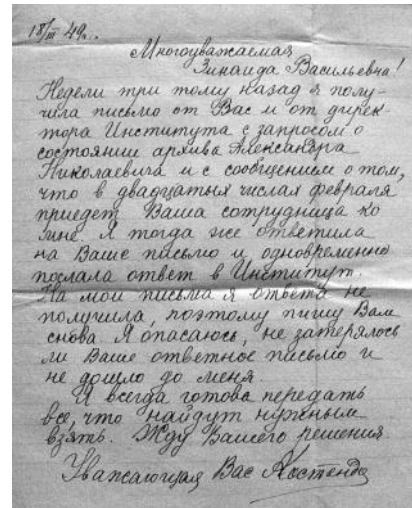 18/III 49 г.
Многоуважаемая
Зинаида Васильевна!
Недели три тому назад я полу-
чила письмо от Вас и от дирек-
тора Института с запросом о
состоянии архива Александра
Николаевича и с сообщением о том,
что в двадцатых числах февраля
приедет Ваша сотрудница ко
мне. Я тогда же ответила
на Ваше письмо и одновременно
послала ответ в Институт.
На мои письма я ответа не
получила, поэтому пишу Вам
снова. Я опасаюсь, не затерялось
ли Ваше ответное письмо и
не дошло до меня.
Я всегда готова передать
все, что найдут нужным
взять. Жду Вашего решения.
Уважающая Вас